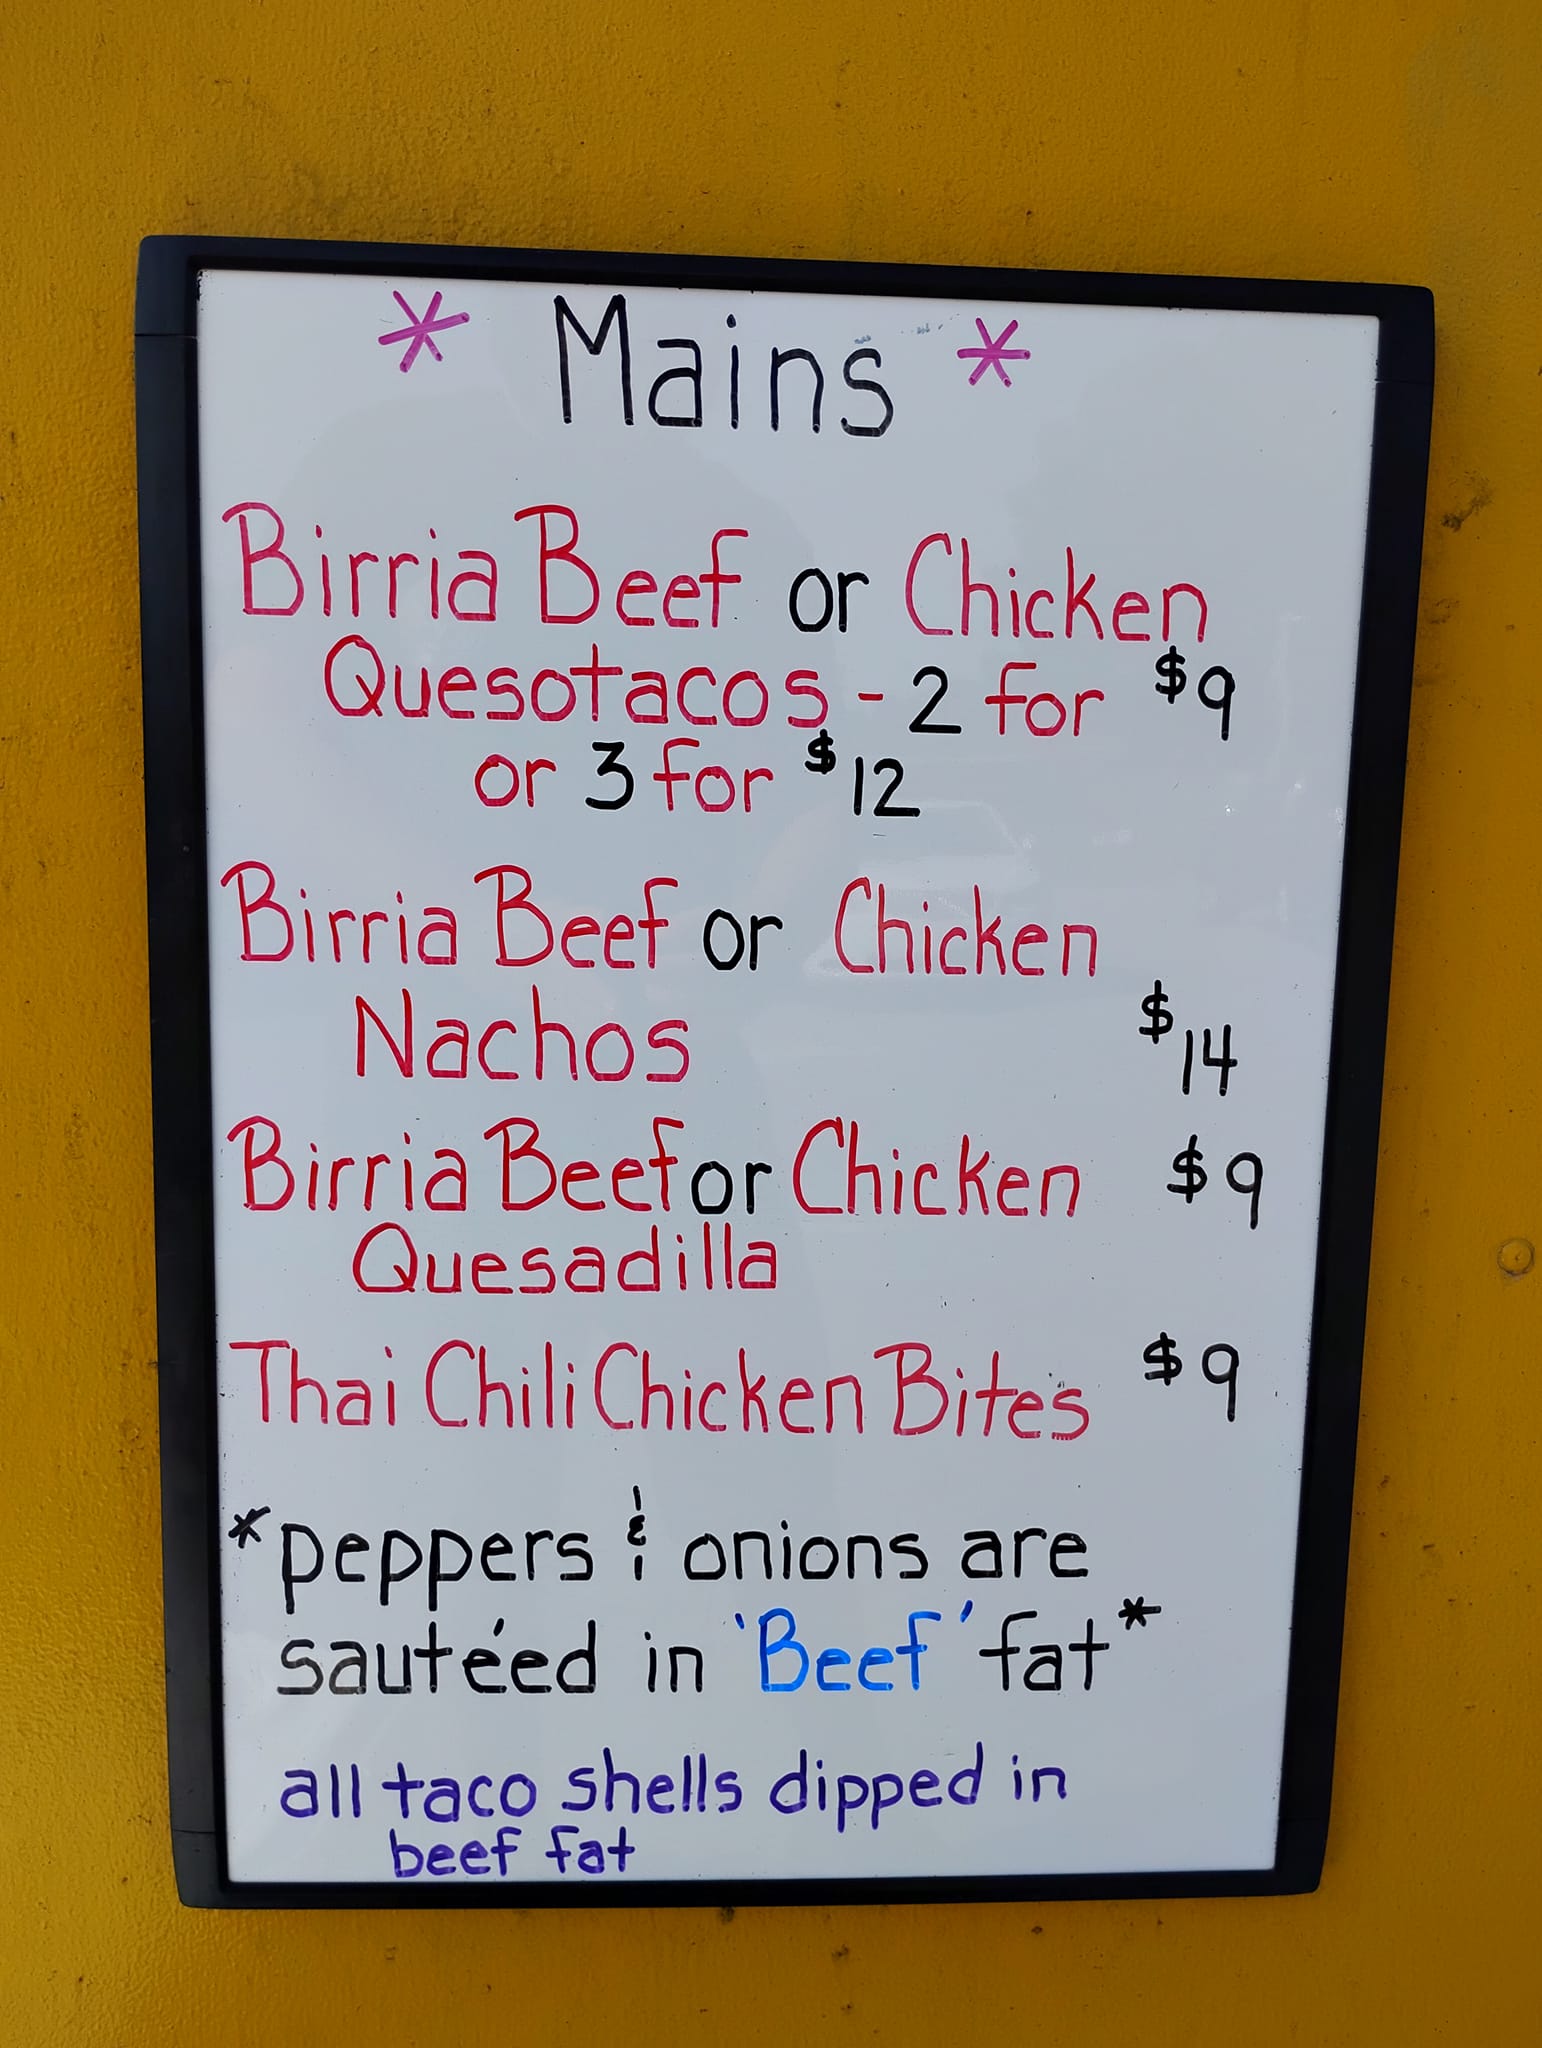 * Mains *
Birria Beef or Chicken
Quesotacos - 2 for $9
or 3 for $12
Birria Beef or Chicken
Nachos $14
Birria Beef or Chicken $9
Quesadilla
Thai Chili Chicken Bites $9
*peppers & onions are
sautéed in 'Beef' fat*
all taco shells dipped in
beef fat